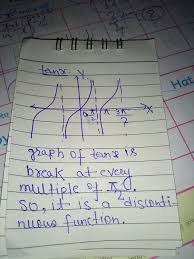 tanx
y
π/2 π 3π/2 x
graph of tanx is
break at every
multiple of π/2
so, it is a disconti
nuous function.